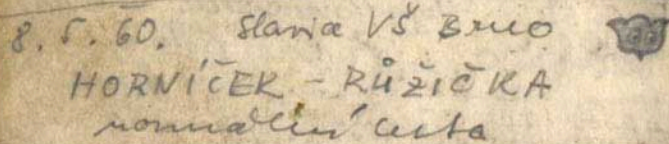 8. 5. 60. Slavia VŠ Brno
HORNÍČEK - RŮŽIČKA
normální cesta